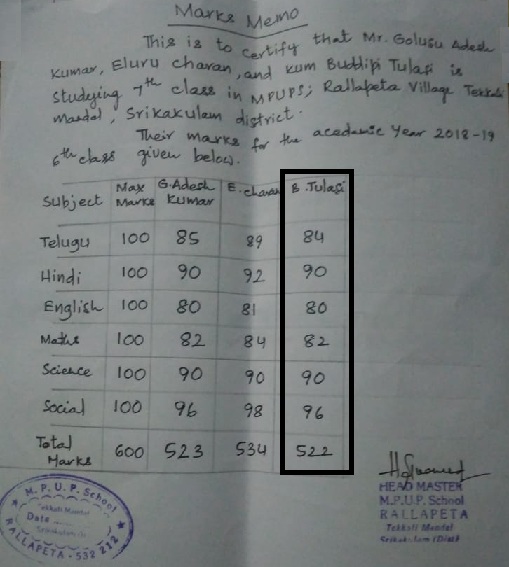 Marks Memo
This is to certify that Mr. Golusu Adesh
Kumar, Eluru charan, and kum Buddipi Tulasi is
studying 7th class in MPUPS; Rallapeta Village Tekkali
mandal, Srikakulam district.
Their marks for the acadamic Year 2018-19
6th class given below.
Subject Max Marks G.Adesh Kumar E.charan B.Tulasi
Telugu 100 85 89 84
Hindi 100 90 92 90
English 100 80 81 80
Maths 100 82 84 82
Science 100 90 90 90
Social 100 96 98 96
Total Marks 600 523 534 522
HEAD MASTER
M.P.U.P. School
RALLAPETA
Tekkali Mandal
Srikakulam (Dist)
M.P.U.P. School
Tekkali Mandal
Date
Srikakulam
RALLAPETA - 532 212